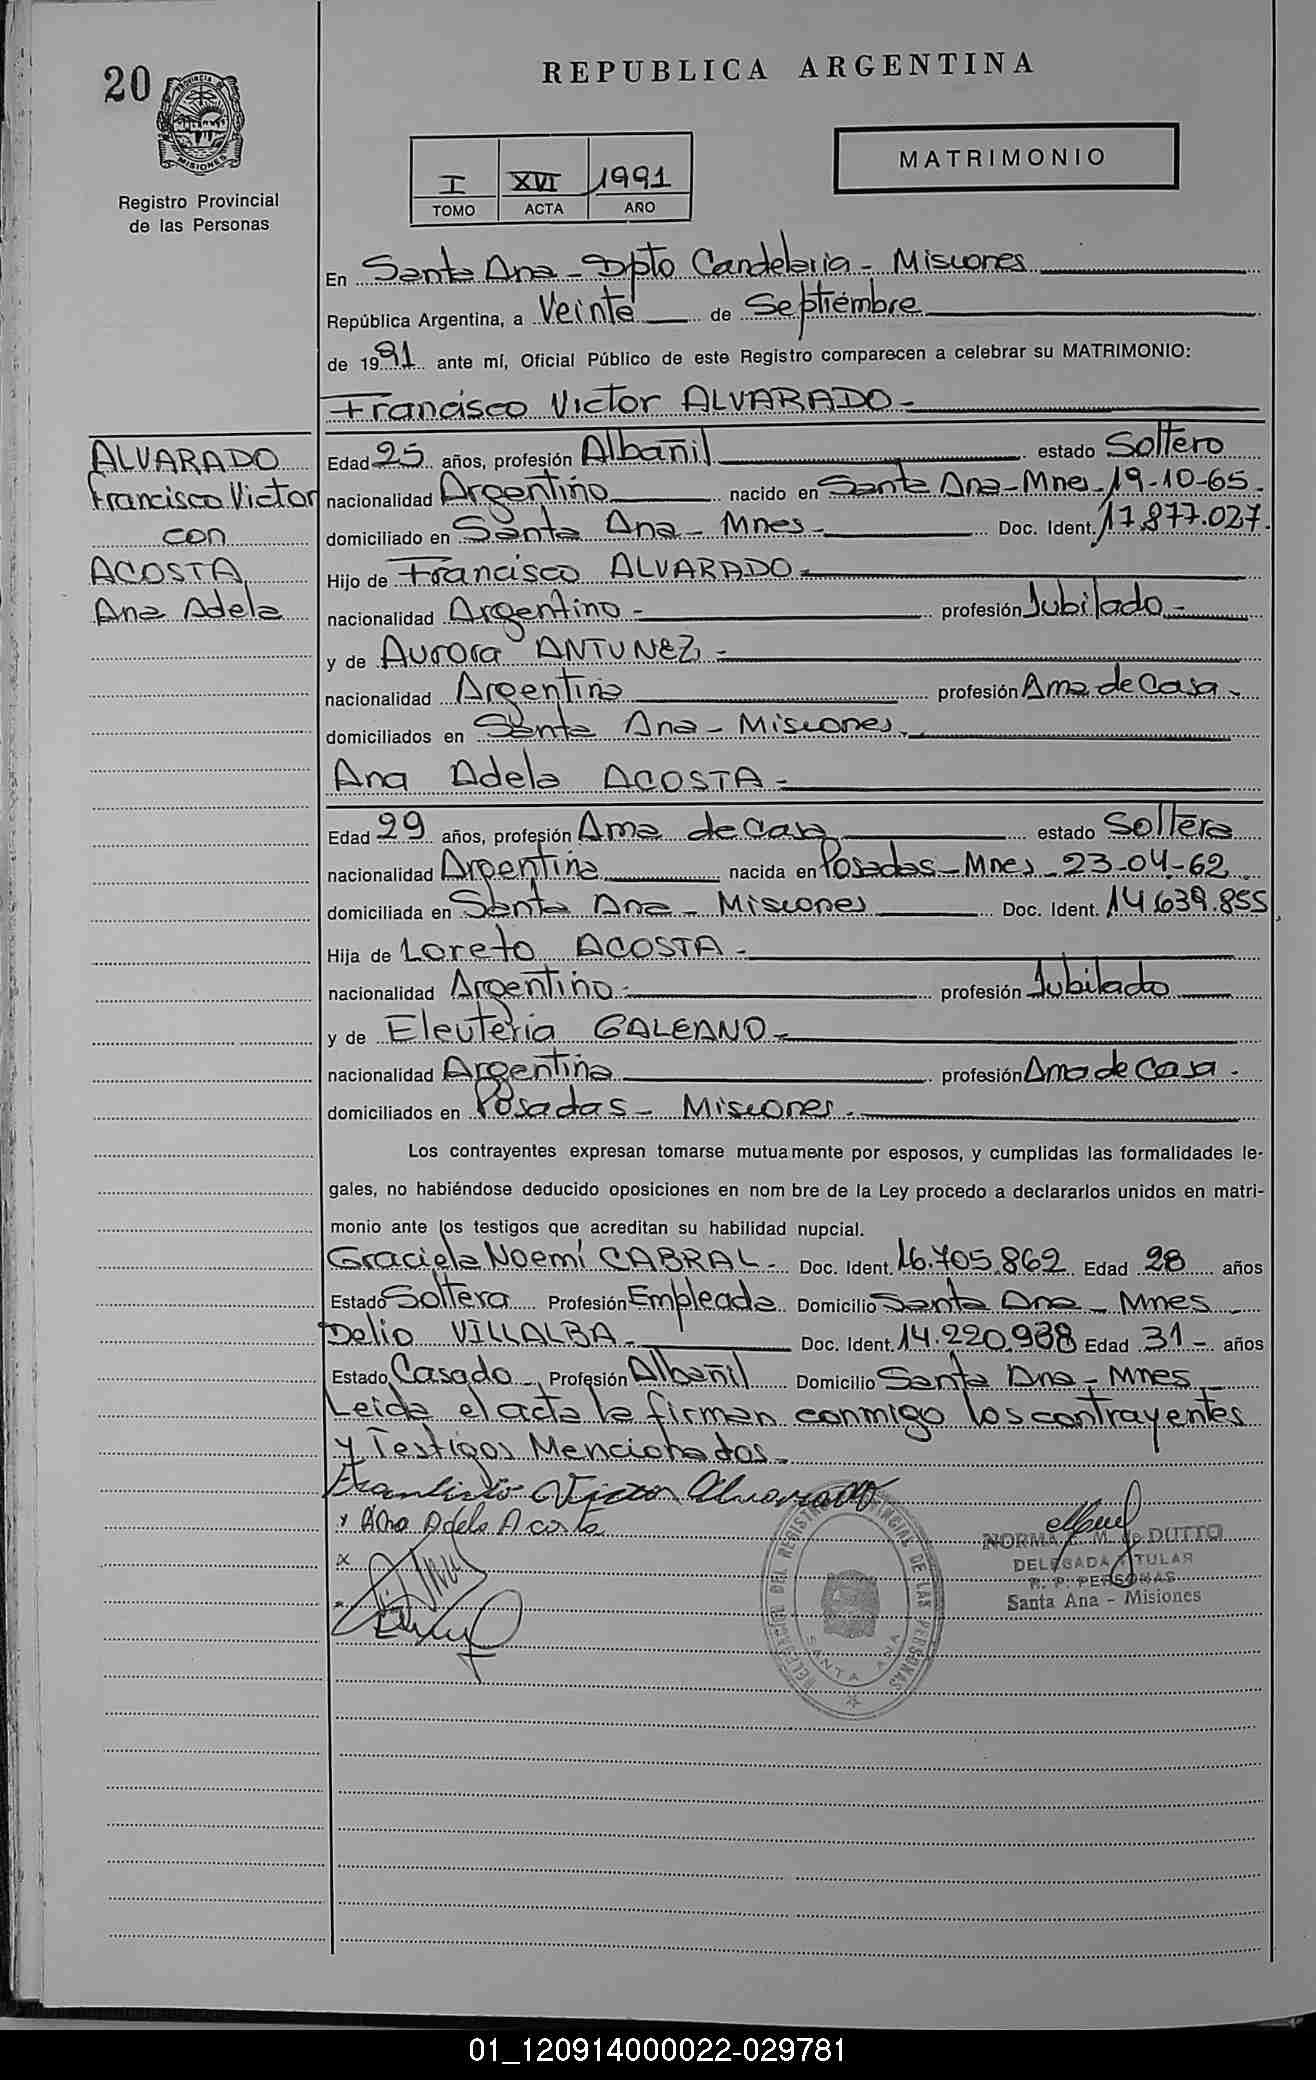 20
PROVINCIA DE
MISIONES
Registro Provincial
de las Personas
REPUBLICA ARGENTINA
I XVI 1991
TOMO ACTA AÑO
MATRIMONIO
En Santa Ana - Dpto Candelaria - Misiones
República Argentina, a Veinte de Septiembre
de 1991 ante mí, Oficial Público de este Registro comparecen a celebrar su MATRIMONIO:
Francisco Victor ALVARADO -
ALVARADO
Francisco Victor
con
ACOSTA
Ana Adela
Edad 25 años, profesión Albañil estado Soltero
nacionalidad Argentino nacido en Santa Ana - Mnes - 19-10-65.
domiciliado en Santa Ana - Mnes - Doc. Ident. 17.877.027.
Hijo de Francisco ALVARADO -
nacionalidad Argentino - profesión Jubilado -
y de Aurora ANTUNEZ -
nacionalidad Argentina profesión Ama de Casa -
domiciliados en Santa Ana - Misiones.
Ana Adela ACOSTA -
Edad 29 años, profesión Ama de Casa estado Soltera
nacionalidad Argentina nacida en Posadas - Mnes - 23-04-62.
domiciliada en Santa Ana - Misiones Doc. Ident. 14.639.855
Hija de Loreto ACOSTA -
nacionalidad Argentino - profesión Jubilado
y de Eleuteria GALEANO -
nacionalidad Argentina profesión Ama de Casa -
domiciliados en Posadas - Misiones.
Los contrayentes expresan tomarse mutuamente por esposos, y cumplidas las formalidades le-
gales, no habiéndose deducido oposiciones en nom bre de la Ley procedo a declararlos unidos en matri-
monio ante los testigos que acreditan su habilidad nupcial.
Graciela Noemí CABRAL - Doc. Ident. 16.705.862 Edad 28 años
Estado Soltera Profesión Empleada Domicilio Santa Ana - Mnes -
Delio VILLALBA - Doc. Ident. 14.220.938 Edad 31 - años
Estado Casado - Profesión Albañil Domicilio Santa Ana - Mnes -
Leida el acta la firman conmigo los contrayentes
y Testigos Mencionados -
Francisco Victor Alvarado
x Ana Adela Acosta
x
DELEGACION DEL REGISTRO PROVINCIAL DE LAS PERSONAS
SANTA ANA
NORMA M. de DUTTO
DELEGADA TITULAR
R. P. PERSONAS
Santa Ana - Misiones
01_120914000022-029781